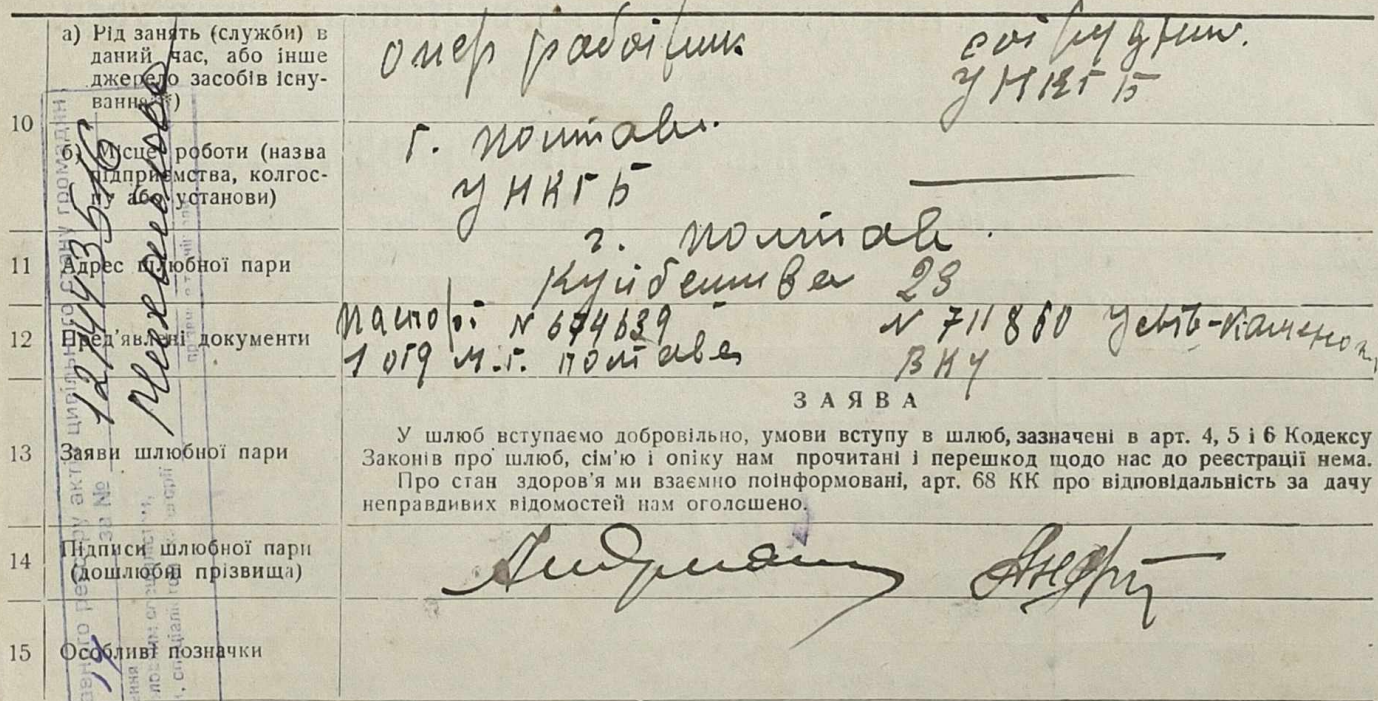 а) Рід занять (служби) в
даний час, або інше
джерело засобів існу-
вання*)
опер работник
сотрудник.
УНКГБ
10
б) Місце роботи (назва
підприємства, колгос-
пу або установи)
г. Полтава.
УНКГБ
11
Адрес шлюбної пари
г. Полтав.
Куйбешива 23
12
Пред'явлені документи
паспорт N 674639
1 отд м. г. Полтава
N 711860 Усть-Каменог.
ВКУ
ЗАЯВА
13
Заяви шлюбної пари
У шлюб вступаємо добровільно, умови вступу в шлюб, зазначені в арт. 4, 5 і 6 Кодексу
Законів про шлюб, сім'ю і опіку нам прочитані і перешкод щодо нас до реєстрації нема.
Про стан здоров'я ми взаємно поінформовані, арт. 68 КК про відповідальність за дачу
неправдивих відомостей нам оголошено.
14
Підписи шлюбної пари
(дошлюбні прізвища)
15
Особливі позначки
цивільного стану громадян
за №